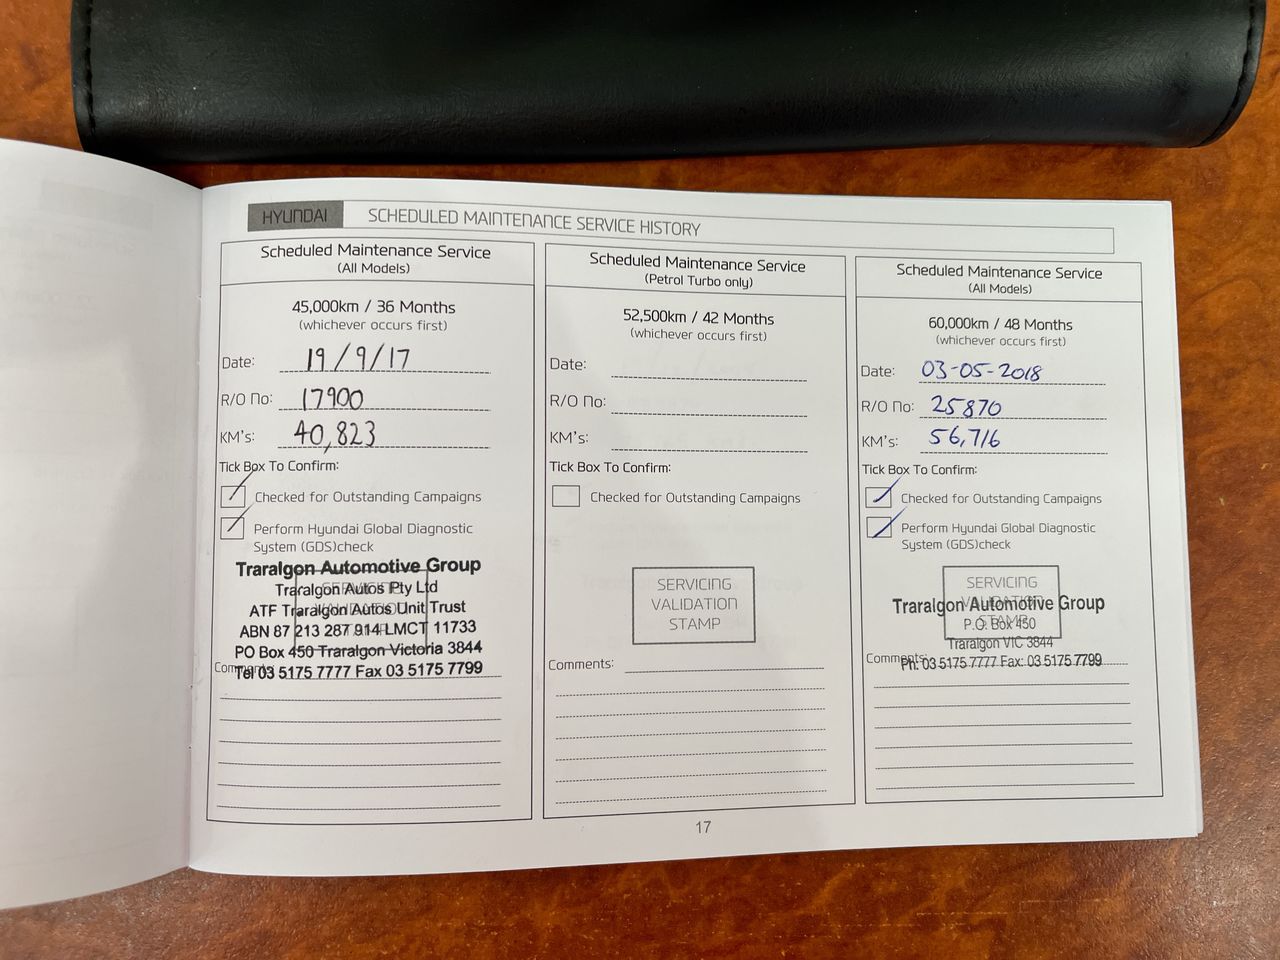 HYUNDAI SCHEDULED MAINTENANCE SERVICE HISTORY
Scheduled Maintenance Service
(All Models)
45,000km / 36 Months
(whichever occurs first)
Date: 19/9/17
R/O No: 17900
KM's: 40,823
Tick Box To Confirm:
Checked for Outstanding Campaigns
Perform Hyundai Global Diagnostic
System (GDS)check
SERVICING
VALIDATION
STAMP
Traralgon Automotive Group
Traralgon Autos Pty Ltd
ATF Traralgon Autos Unit Trust
ABN 87 213 287 914 LMCT 11733
PO Box 450 Traralgon Victoria 3844
Tel 03 5175 7777 Fax 03 5175 7799
Comments:
Scheduled Maintenance Service
(Petrol Turbo only)
52,500km / 42 Months
(whichever occurs first)
Date:
R/O No:
KM's:
Tick Box To Confirm:
Checked for Outstanding Campaigns
SERVICING
VALIDATION
STAMP
Comments:
Scheduled Maintenance Service
(All Models)
60,000km / 48 Months
(whichever occurs first)
Date: 03-05-2018
R/O No: 25870
KM's: 56,716
Tick Box To Confirm:
Checked for Outstanding Campaigns
Perform Hyundai Global Diagnostic
System (GDS)check
SERVICING
VALIDATION
STAMP
Traralgon Automotive Group
P.O. Box 450
Traralgon VIC 3844
Ph: 03 5175 7777 Fax: 03 5175 7799
Comments:
17